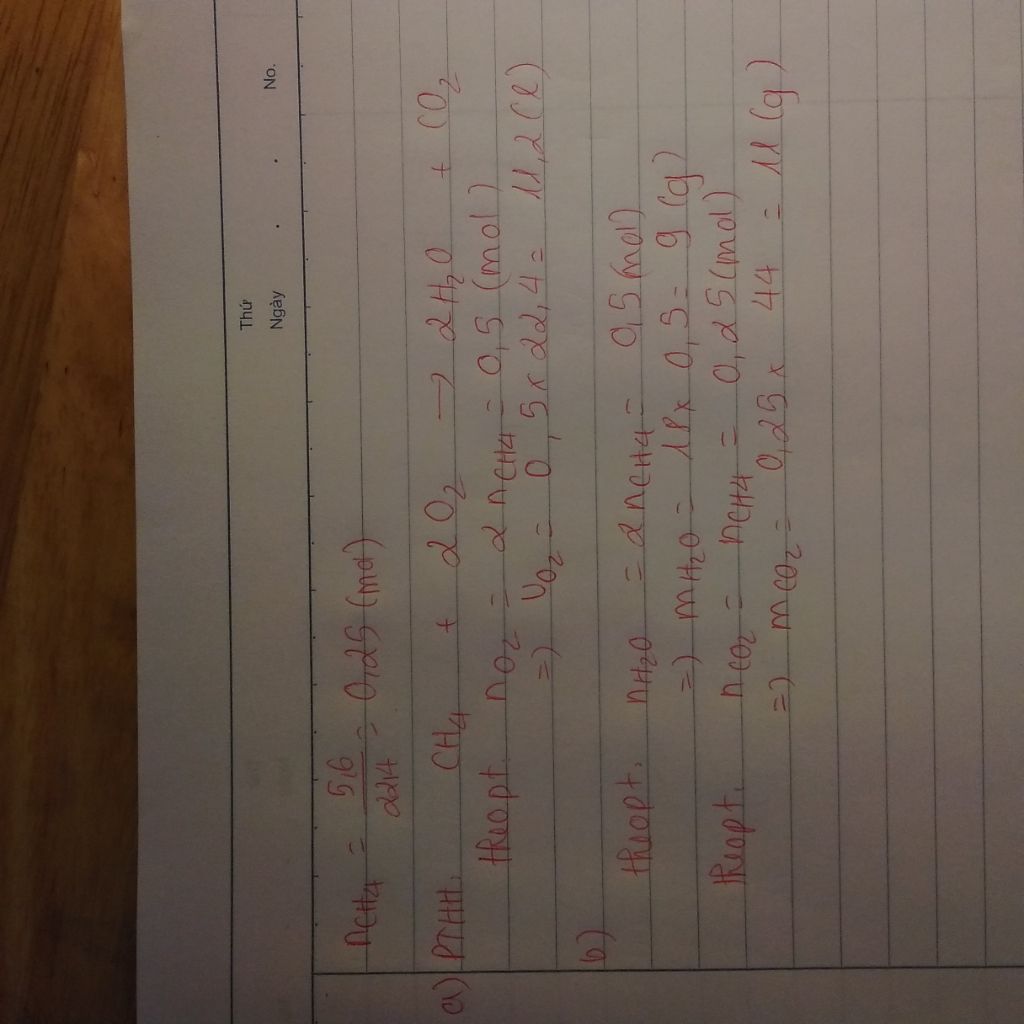 Thứ
Ngày . . No.
nCH4 = 5,6/22,4 = 0,25 (mol)
a) PTHH. CH4 + 2O2 → 2H2O + CO2
theo pt. nO2 = 2nCH4 = 0,5 (mol)
=) VO2 = 0,5 x 22,4 = 11,2 (l)
b)
theo pt. nH2O = 2nCH4 = 0,5 (mol)
=) mH2O = 18 x 0,5 = 9 (g)
theo pt. nCO2 = nCH4 = 0,25 (mol)
=) mCO2 = 0,25 x 44 = 11 (g)